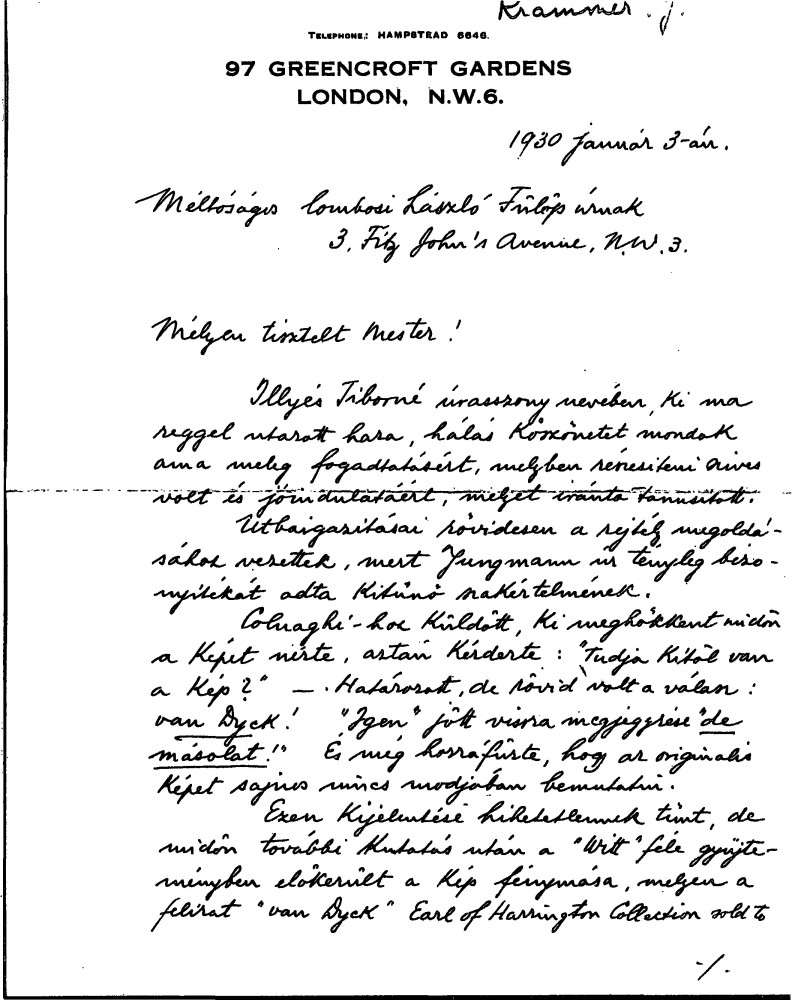 Krammer. J.
TELEPHONE: HAMPSTEAD 6646.
97 GREENCROFT GARDENS
LONDON, N.W.6.
1930 január 3-án.
Méltóságos lombosi László Fülöp úrnak
3, Fitz John's Avenue, N.W.3.
Mélyen tisztelt Mester!
Illyés Tiborné úrasszony nevében, ki ma
reggel utazott haza, hálás köszönetet mondok
ama meleg fogadtatásért, melyben részesiteni szives
volt és jóindulatáért, melyet iránta tanusitott.
Utbaigazitásai rövidesen a rejtély megoldá-
sához vezettek, mert Jungmann úr tényleg bizo-
nyitékát adta kitünő szakértelmének.
Colnaghi-hoz küldött, ki meghökkent midőn
a képet nézte, aztán kérdezte: "Tudja kitől van
a kép?" —. Határozott, de rövid volt a válasz:
van Dyck! "Igen" jött vissza megjegyzése "de
másolat!" És még hozzáfűzte, hogy az originalis
képet sajnos nincs modjában bemutatni.
Ezen kijelentése hihetetlennek tünt, de
midőn további kutatás után a "Witt" féle gyüjte-
ményben előkerült a kép fénymása, melyen a
felirat "van Dyck" Earl of Harrington Collection sold to
-/.